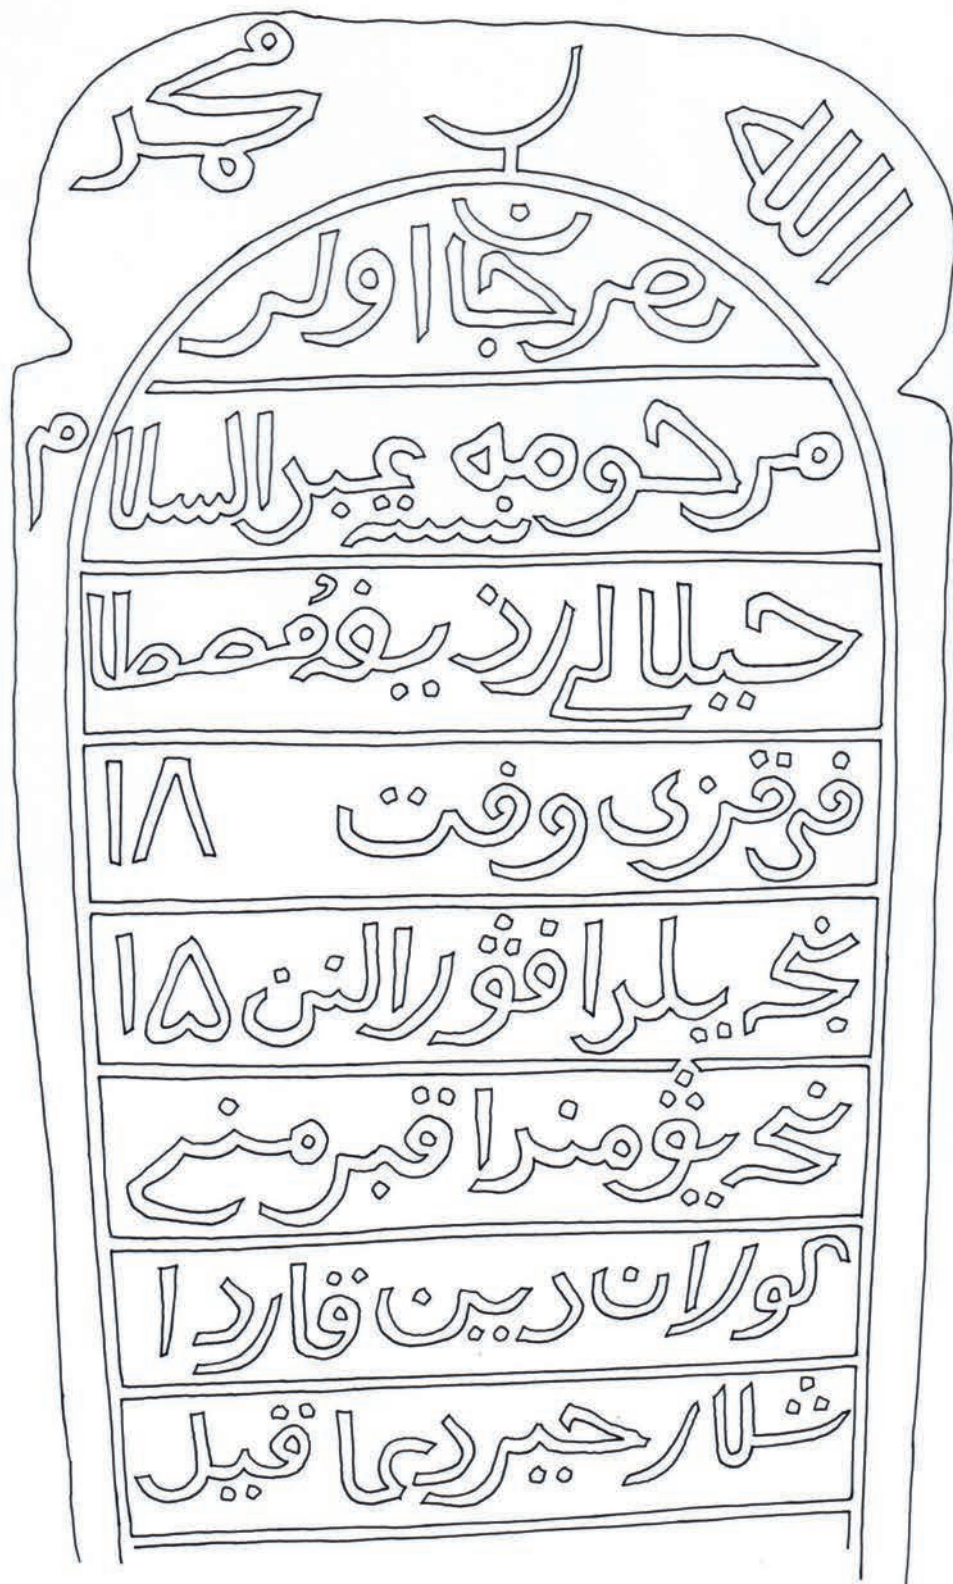 الله
محمد
بصرخان اولر
مرحومه نسته عبد السلام
حيلالے رذيفه مصطا
فى قزى وفت ١٨
نجے يلرا فۋرالنن ١٥
نجے يۋمنرا قبر منے
كورلان دين قاردا
شلار حير دعا قيل